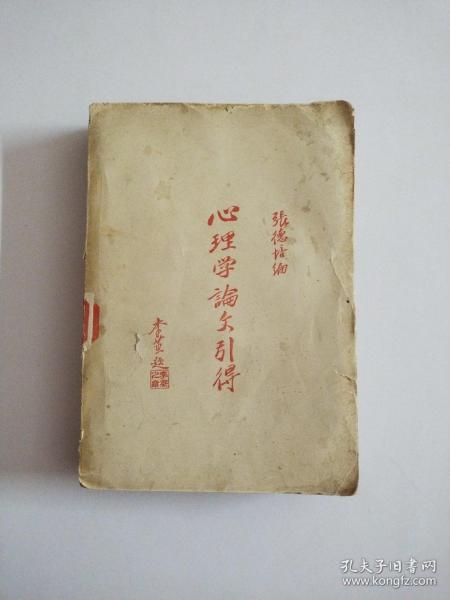 張德培編
心理学論文引得
李蒸題
孔夫子旧书网
www.kongfz.com